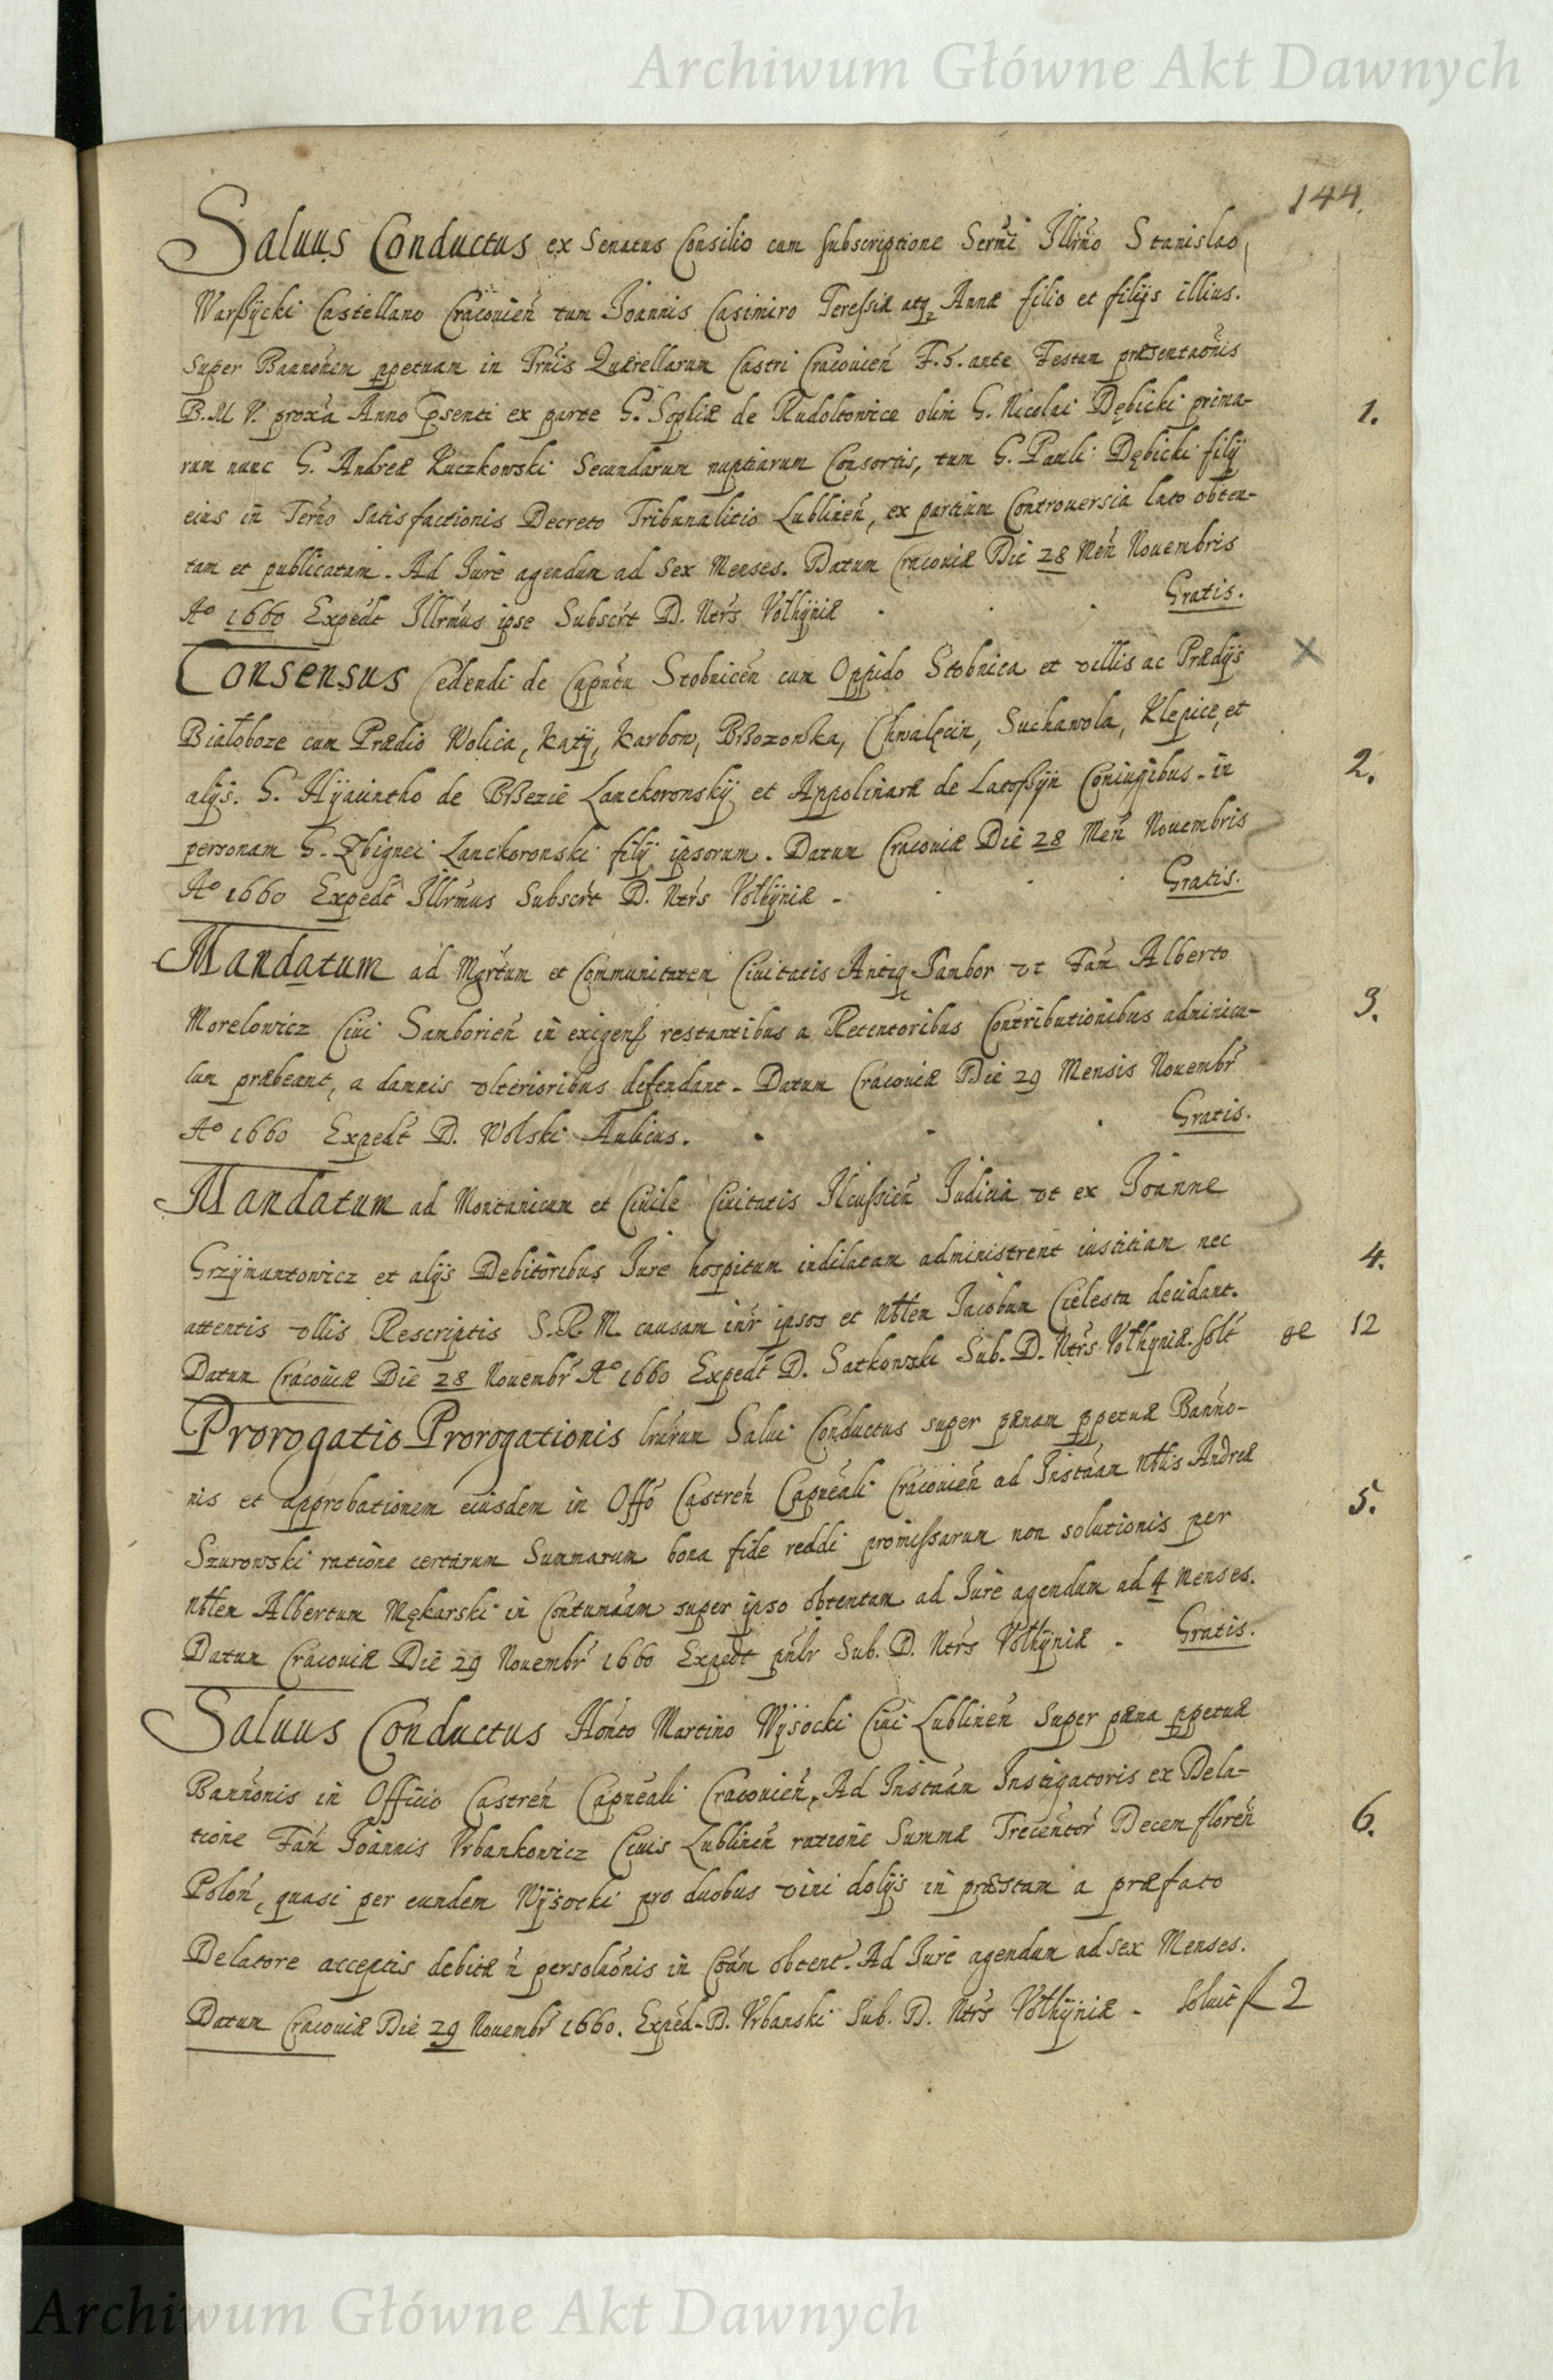 Archiwum Główne Akt Dawnych
144.
Saluus Conductus ex Senatus Consilio cum subscriptione Sermi Illrmo Stanislao
Warßycki Castellano Cracouien tum Joannis Casimiro Teressiæ atq Annæ filio et filijs illius.
super Bannonem ppetuam in Trnis Quærellarum Castri Cracouien F. 5. ante Festum præsentaonis
B. M V. proxa Anno Psenti ex parte G. Sophiæ de Rudoltowice olim G. Nicolai Dębicki prima-
rum nunc G. Andreæ Ruczkowski Secundarum nuptiarum Consortis, tum G. Pauli Dębicki filij
eius in Terno Satisfactionis Decreto Tribunalitio Lublinen, ex partium Controuersia lato obten-
tam et publicatam. Ad Jure agendum ad Sex Menses. Datum Cracouiæ Die 28 Men Nouembris
Ao 1660 Expedt Illrmus ipse Subscrt D. Ntrs Vołhyniæ Gratis.
1.
Consensus Cedendi de Capntu Stobnicen cum Oppido Stobnica et villis ac Prædijs
Białoboze cum Prædio Wolica, Kąty, Karbow, Brßozowka, Chwalęcin, Suchawola, Klepice, et
alijs. G. Hyacintho de Brßezie Lanckoronskij et Appolinaræ de Latoßyn Coniugibus - in
personam G. Zbignei Lanckoronski filij ipsorum. Datum Cracouiæ Die 28 Men Nouembris
Ao 1660 Expedt Illrmus Subscrt D. Ntrs Vołhyniæ - Gratis.
2.
Mandatum ad Mgrtum et Communitatem Ciuitatis Antiq Sambor vt Fam Alberto
Morelowicz Ciui Samborien in exigen restantibus a Retentoribus Contributionibus adminicu-
lum præbeant, a damnis vlterioribus defendant - Datum Cracouiæ Die 29 Mensis Nouembr
Ao 1660 Expedt D. Wolski Aulicus. Gratis.
3.
Mandatum ad Montanicum et Ciuile Ciuitatis Ilcussien Judicia vt ex Joanne
Grzymuntowicz et alijs Debitoribus Jure hospitum indilatam administrent iustitiam nec
attentis vllis Rescriptis S. R. M. causam intr ipsos et Nblem Jacobum Cielesta decidant.
Datum Cracouiæ Die 28 Nouembr Ao 1660 Expedt D. Satkowski Sub. D. Ntrs Vołhyniæ. solt 12
4.
Prorogatio Prorogationis lrarum Salui Conductus super pænam ppetuæ Banno-
nis et approbationem eiusdem in Offo Castren Capneali Cracouien ad Instam Nblis Andreæ
Szurowski ratione certarum Summarum bona fide reddi promissarum non solutionis per
Nblem Albertum Mękarski in Contumam super ipso obtentam ad Jure agendum ad 4 Menses.
Datum Cracouiæ Die 29 Nouembr 1660 Expedt pnlr Sub. D. Ntrs Vołhyniæ - Gratis.
5.
Saluus Conductus Honto Martino Wysocki Ciui Lublinen Super pæna ppetuæ
Bannonis in Officio Castren Capneali Cracouien, Ad Instam Instigatoris ex Dela-
tione Fam Joannis Vrbankowicz Ciuis Lublinen ratione Summæ Trecentor Decem floren
Polon, quasi per eundem Wysocki pro duobus vini dolijs in præstam a præfato
Delatore acceptis debitæ n persoluonis in Coam obtent. Ad Jure agendum ad sex Menses.
Datum Cracouiæ Die 29 Nouembr 1660. Exped. D. Vrbanski Sub. D. Ntrs Vołhyniæ - Soluit f 2
6.
Archiwum Główne Akt Dawnych